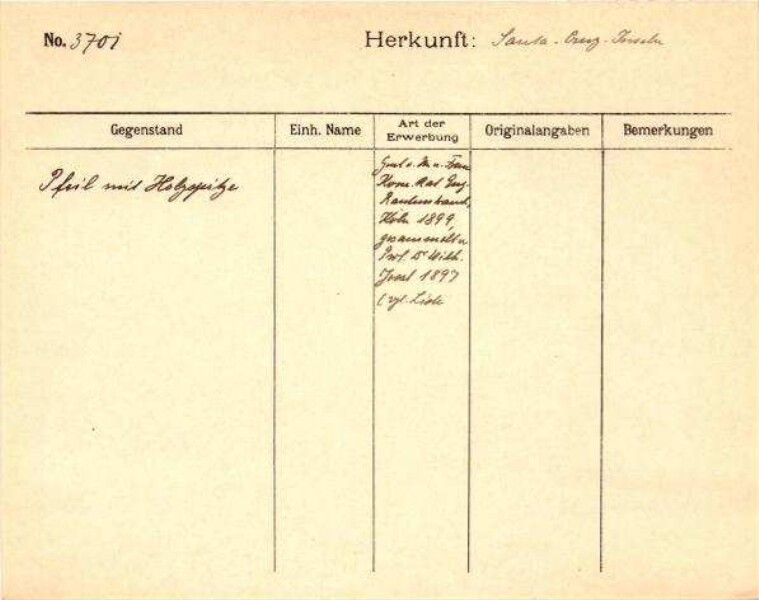 No. 3701 Herkunft: Santa-Cruz-Inseln
Gegenstand Einh. Name Art der Erwerbung Originalangaben Bemerkungen
Pfeil mit Holzspitze
Gesch. v. Frau
Kom. Rat Eug.
Rautenstrauch,
Köln 1899,
gesammelt v.
Prof. Dr Wilh.
Joest 1897
(vgl. Liste